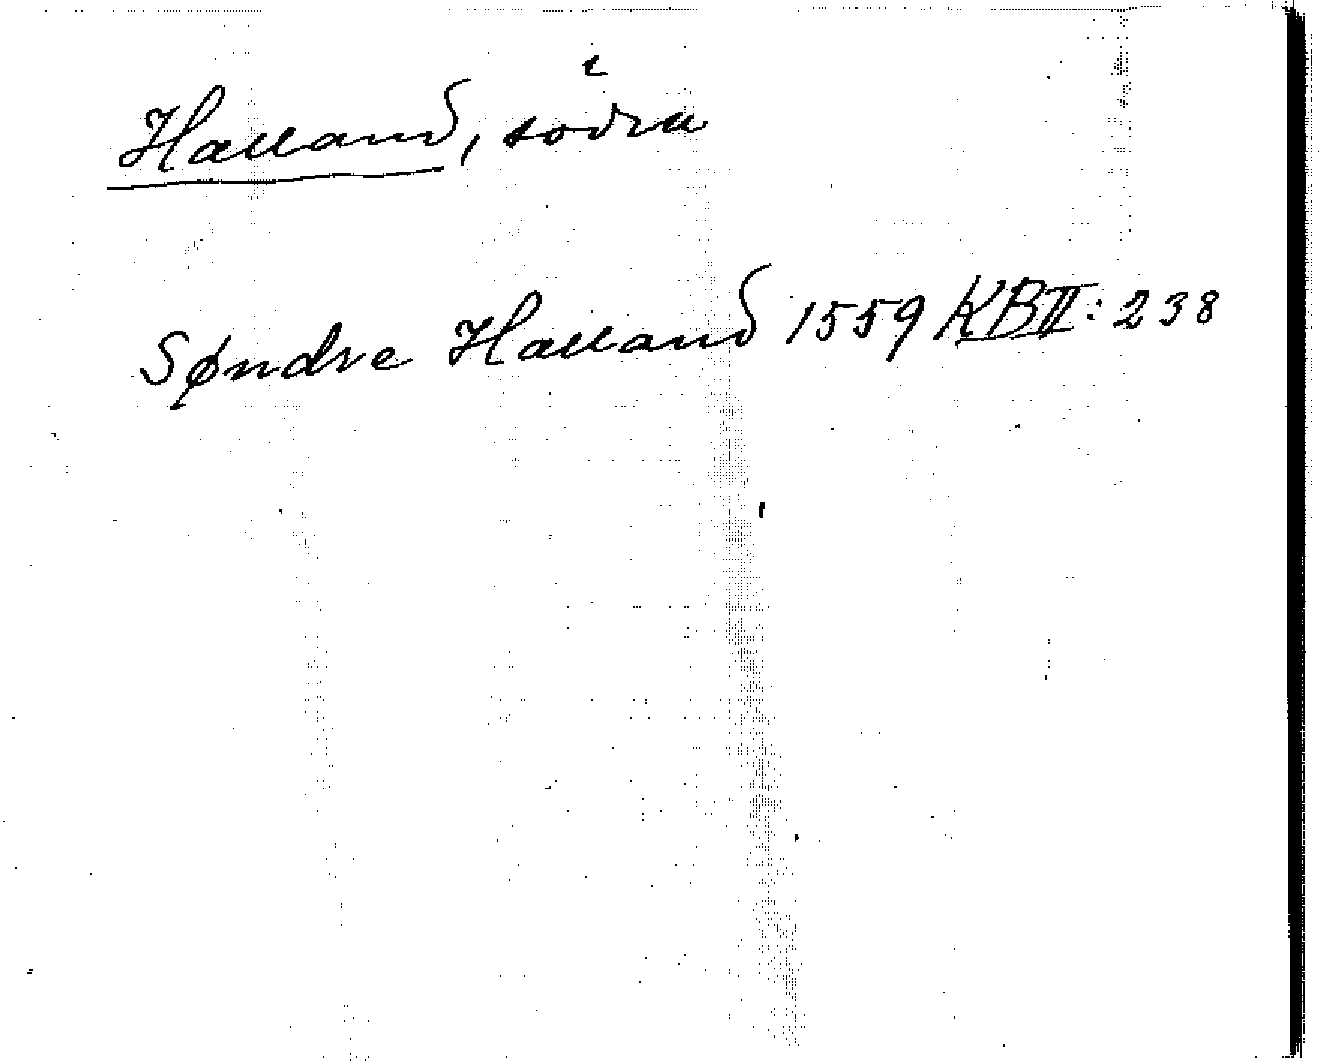 Halland, södra
Søndre Halland 1559 KBII: 238